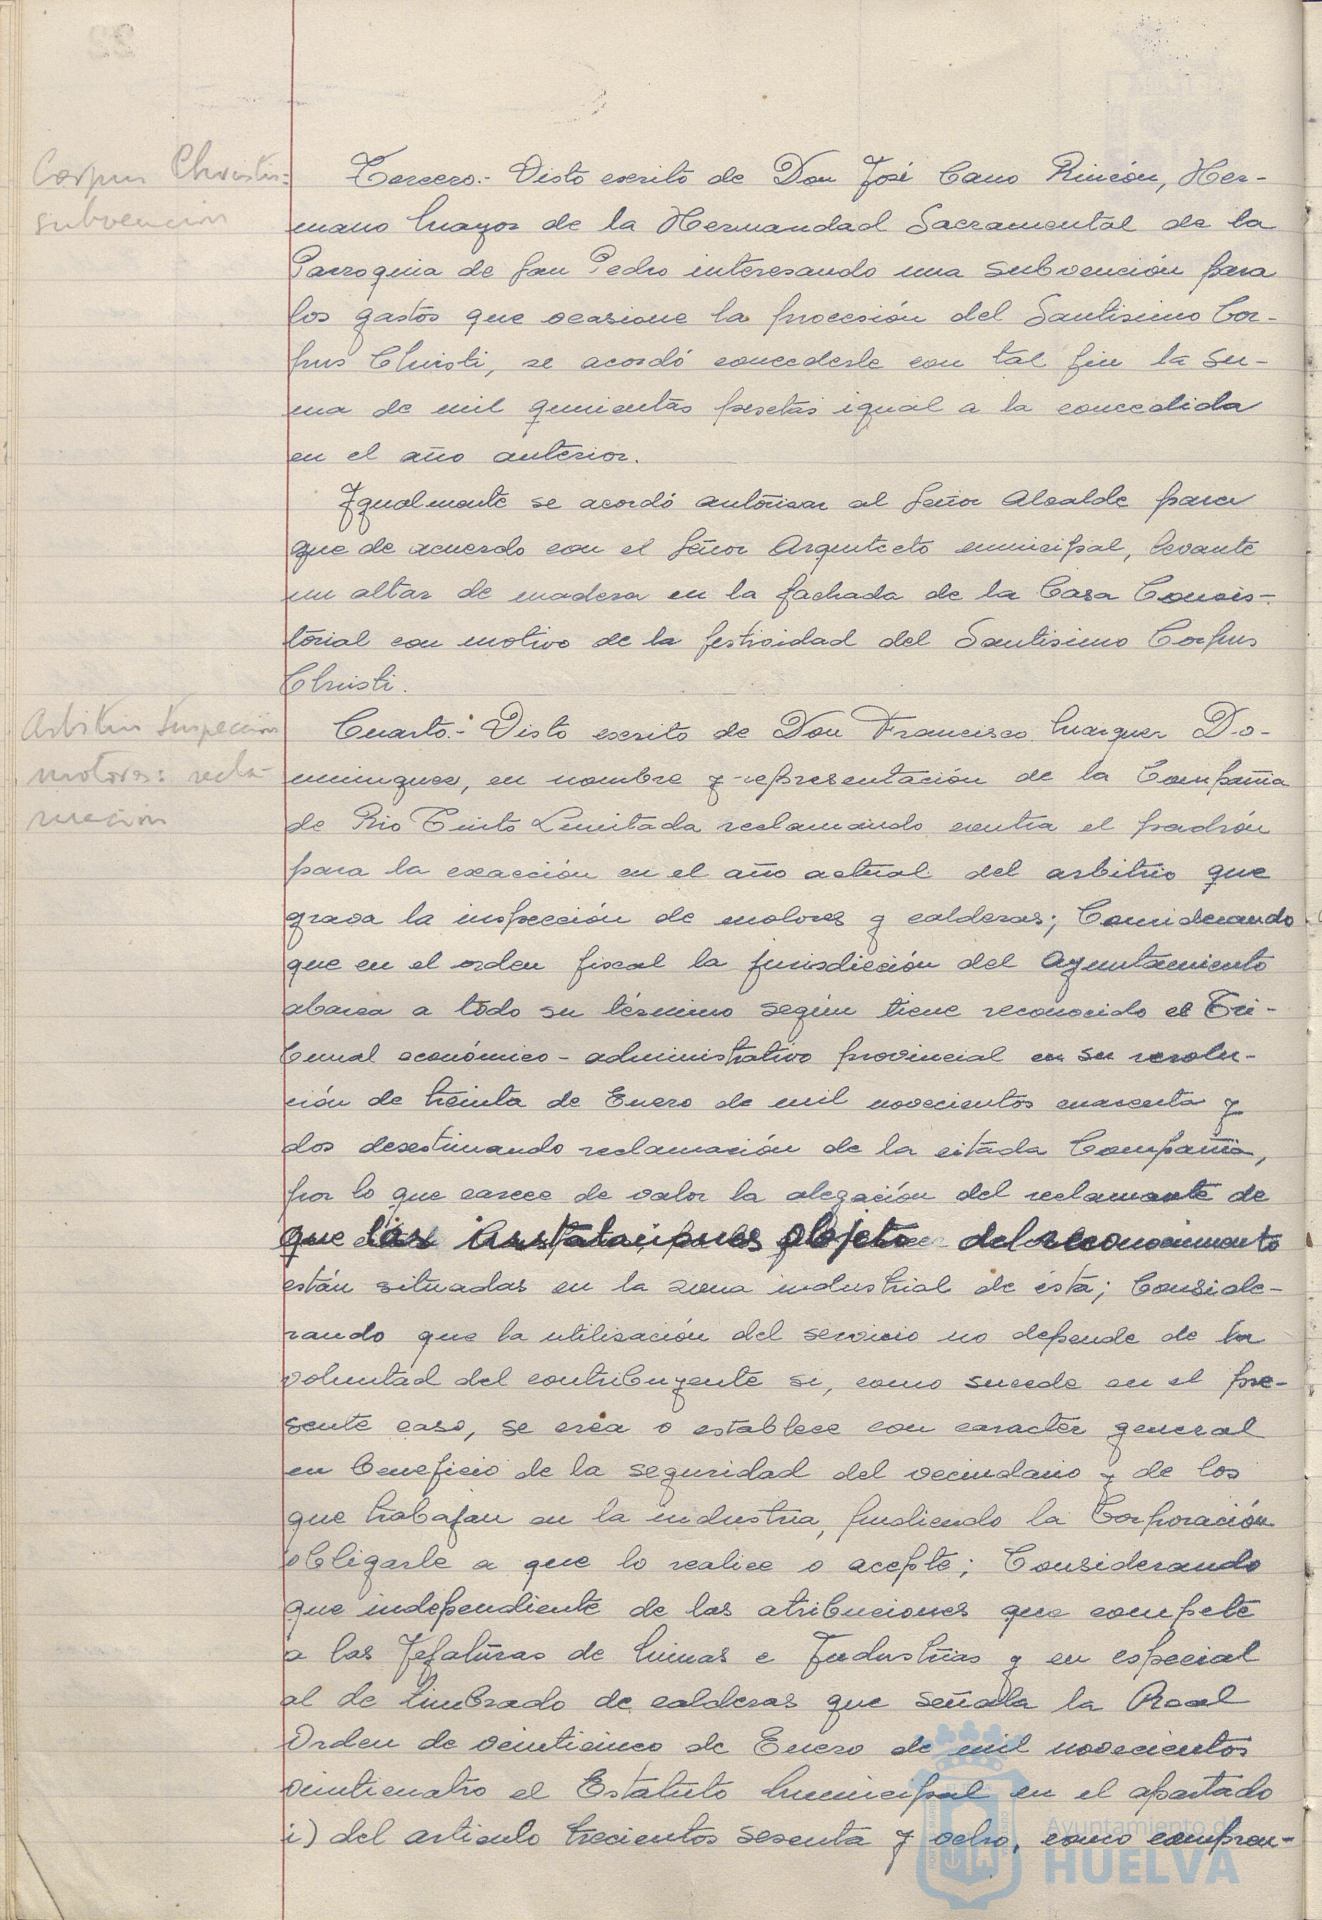 Corpus Christi:
subvención
Tercero.- Visto escrito de Don José Cano Rincón, Her-
mano Mayor de la Hermandad Sacramental de la
Parroquia de San Pedro interesando una subvención para
los gastos que ocasione la procesión del Santisimo Cor-
pus Christi, se acordó concederle con tal fin la su-
ma de mil quinientas pesetas igual a la concedida
en el año anterior.
Igualmente se acordó autorizar al Señor Alcalde para
que de acuerdo con el Señor Arquitecto municipal, levante
un altar de madera en la fachada de la Casa Consis-
torial con motivo de la festividad del Santisimo Corpus
Christi.
Arbitrio Inspección
motores: recla-
mación
Cuarto.- Visto escrito de Don Francisco Marquez Do-
minguez, en nombre y representación de la Compañia
de Rio Tinto Limitada reclamando contra el padrón
para la exacción en el año actual del arbitrio que
grava la inspección de motores y calderas; Considerando
que en el orden fiscal la jurisdicción del Ayuntamiento
abarca a todo su término según tiene reconocido el Tri-
bunal económico-administrativo provincial en su resolu-
ción de treinta de Enero de mil novecientos cuarenta y
dos desestimando reclamación de la citada Compañia,
por lo que carece de valor la alegación del reclamante de
que las instalaciones objeto del reconocimiento
están situadas en la zona industrial de ésta; Conside-
rando que la utilización del servicio no depende de la
voluntad del contribuyente si, como sucede en el pre-
sente caso, se crea o establece con caracter general
en beneficio de la seguridad del vecindario y de los
que trabajan en la industria, pudiendo la Corporación
obligarle a que lo realice o acepte; Considerando
que independiente de las atribuciones que compete
a las Jefaturas de Minas e Industrias y en especial
al de timbrado de calderas que señala la Real
Orden de veinticinco de Enero de mil novecientos
veinticuatro el Estatuto Municipal en el apartado
i) del articulo trecientos sesenta y ocho, como compren-
Ayuntamiento de
HUELVA